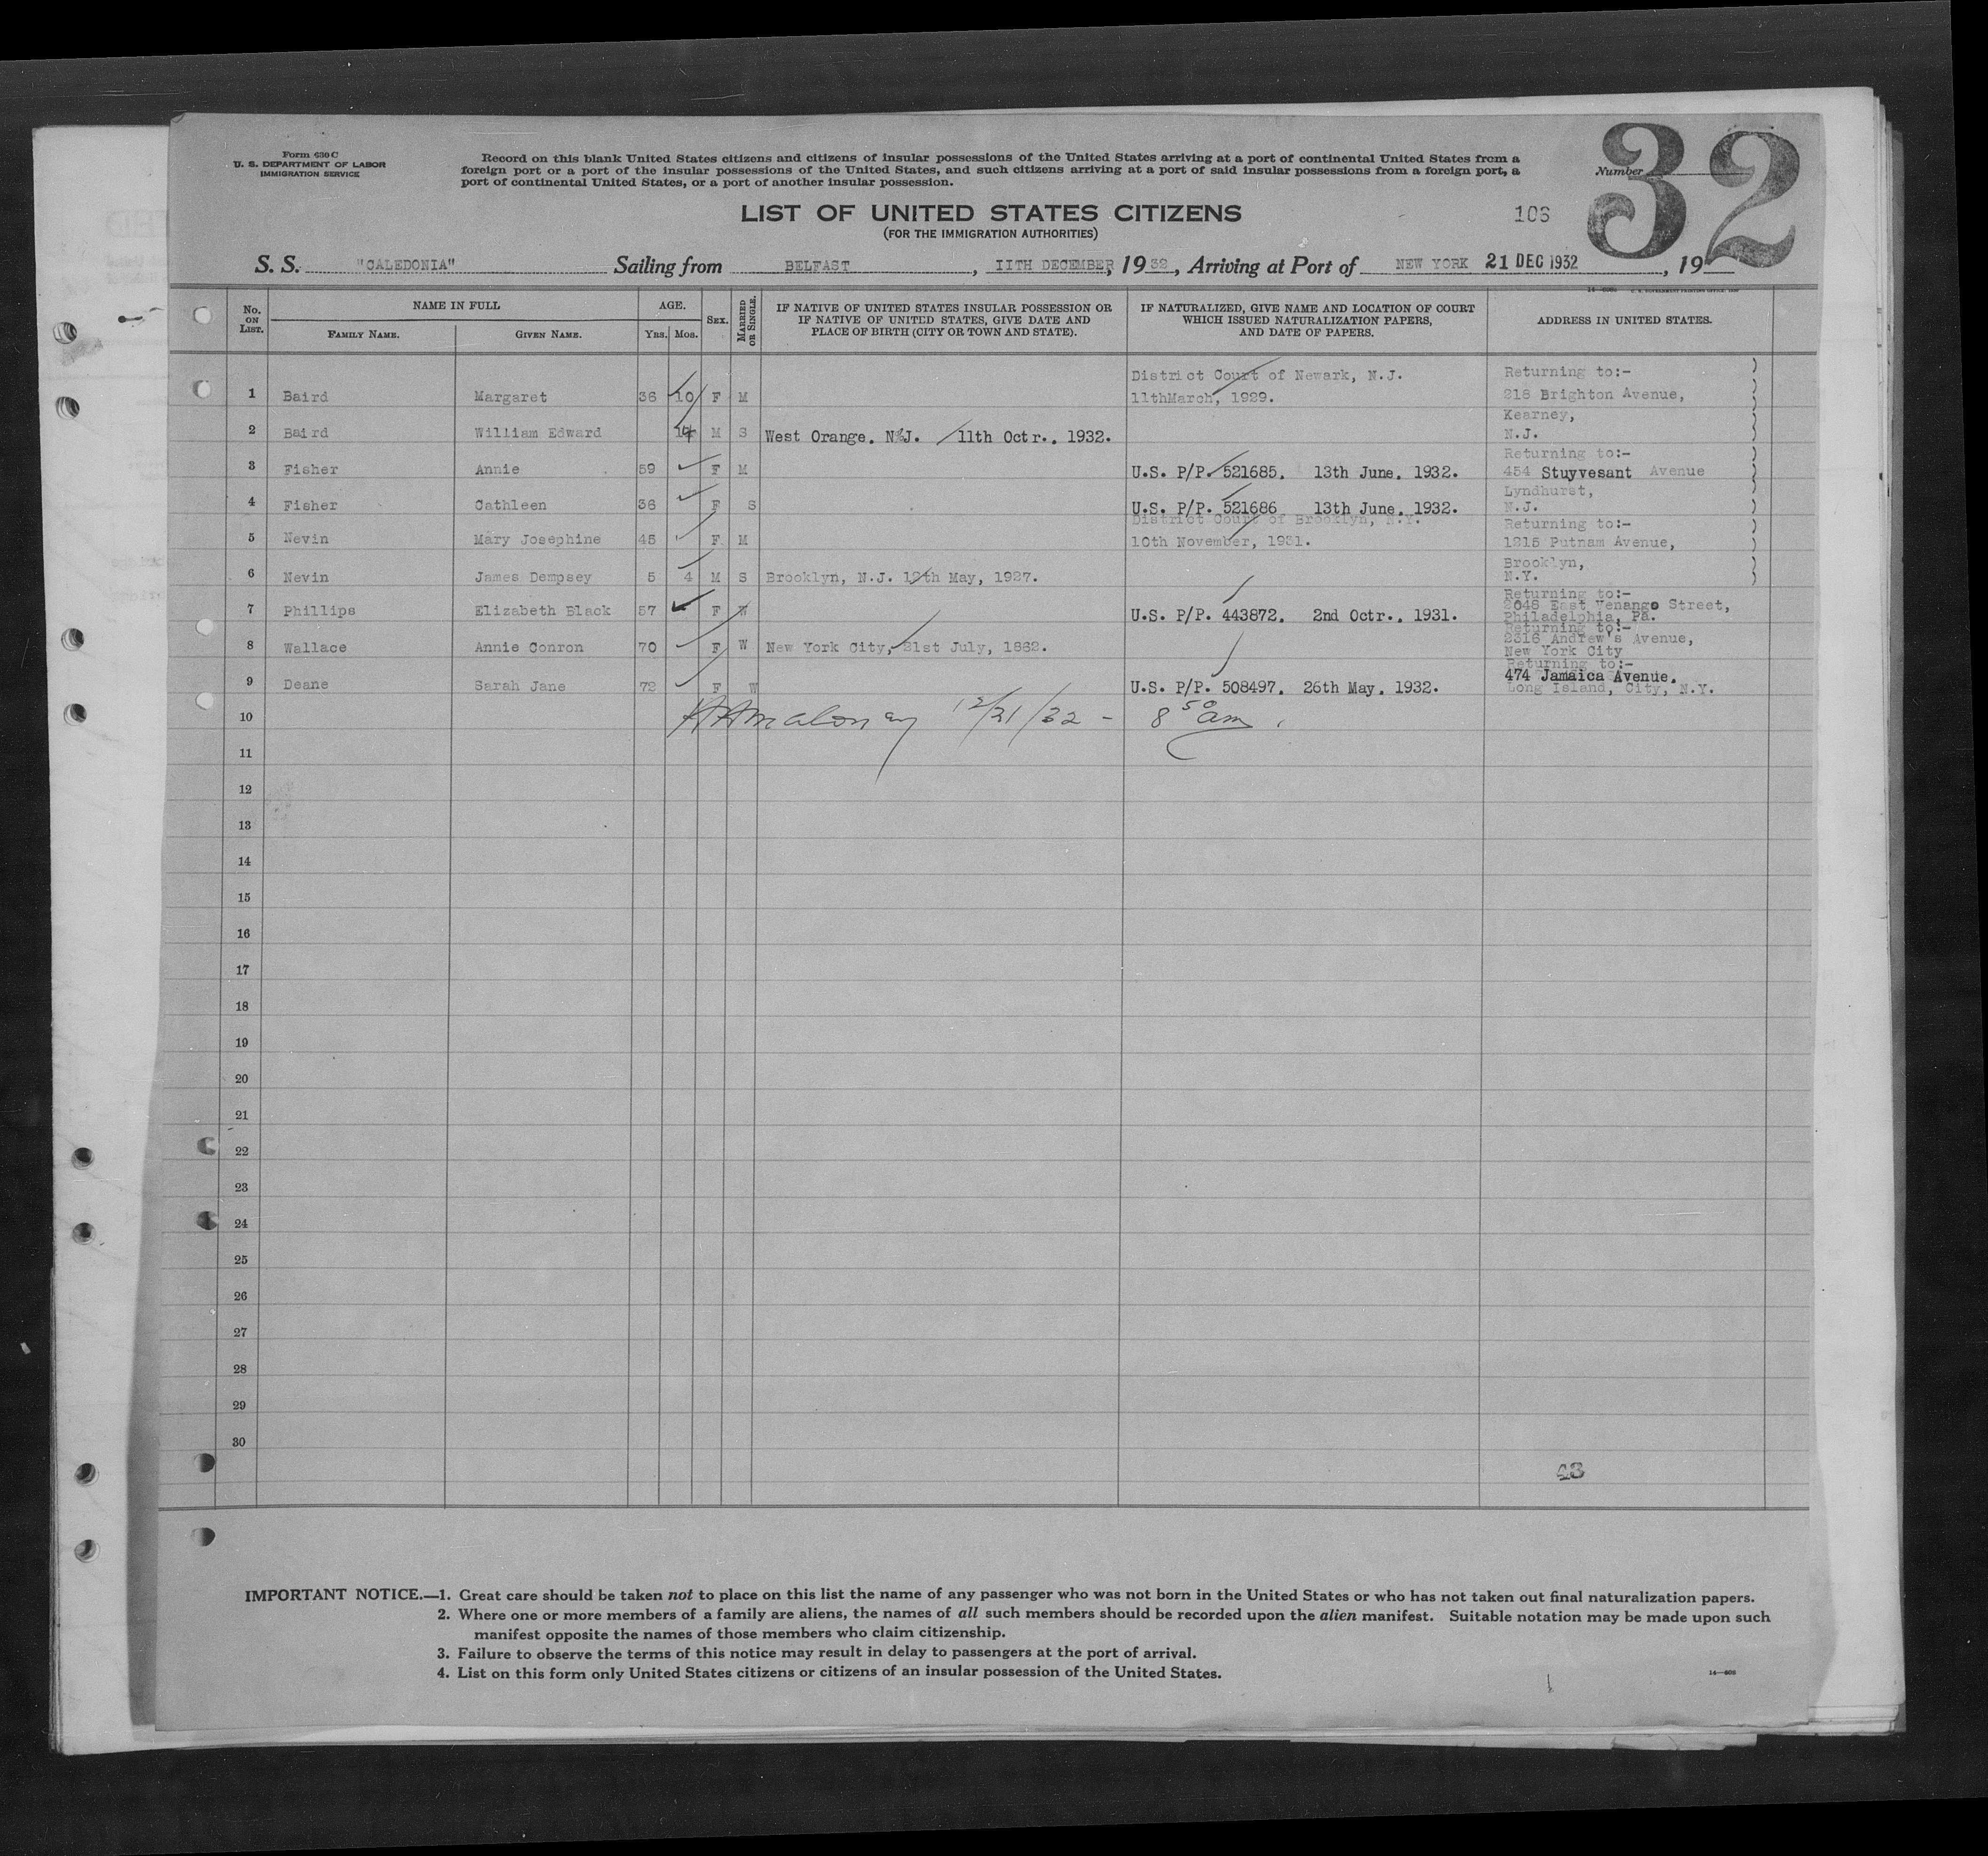 Form 630 C
U. S. DEPARTMENT OF LABOR
IMMIGRATION SERVICE
Record on this blank United States citizens and citizens of insular possessions of the United States arriving at a port of continental United States from a
foreign port or a port of the insular possessions of the United States, and such citizens arriving at a port of said insular possessions from a foreign port, a
port of continental United States, or a port of another insular possession.
Number
32
LIST OF UNITED STATES CITIZENS
106
(FOR THE IMMIGRATION AUTHORITIES)
S. S. "CALEDONIA" Sailing from BELFAST, 11TH DECEMBER, 1932, Arriving at Port of NEW YORK 21 DEC 1932, 19
No. ON LIST. NAME IN FULL AGE. SEX. MARRIED OR SINGLE. IF NATIVE OF UNITED STATES INSULAR POSSESSION OR IF NATIVE OF UNITED STATES, GIVE DATE AND PLACE OF BIRTH (CITY OR TOWN AND STATE). IF NATURALIZED, GIVE NAME AND LOCATION OF COURT WHICH ISSUED NATURALIZATION PAPERS, AND DATE OF PAPERS. ADDRESS IN UNITED STATES.
FAMILY NAME. GIVEN NAME. YRS. MOS.
District Court of Newark, N.J. Returning to:-
1 Baird Margaret 36 10 F M 11thMarch, 1929. 218 Brighton Avenue,
Kearney,
2 Baird William Edward M S West Orange. N.J. 11th Octr., 1932. N.J.
Returning to:-
3 Fisher Annie 59 F M U.S. P/P. 521685. 13th June. 1932. 454 Stuyvesant Avenue
Lyndhurst,
4 Fisher Cathleen 36 F S U.S. P/P. 521686 13th June. 1932. N.J.
District Court of Brooklyn, N.Y. Returning to:-
5 Nevin Mary Josephine 45 F M 10th November, 1931. 1215 Putnam Avenue,
Brooklyn,
6 Nevin James Dempsey 5 4 M S Brooklyn, N.J. 12th May, 1927. N.Y.
Returning to:-
7 Phillips Elizabeth Black 57 F W U.S. P/P. 443872. 2nd Octr.. 1931. 2048 East Venango Street,
Philadelphia, Pa.
Returning to:-
2316 Andrew's Avenue,
8 Wallace Annie Conron 70 F W New York City, 21st July, 1862. New York City
Returning to:-
474 Jamaica Avenue.
9 Deane Sarah Jane 72 F W U.S. P/P. 508497. 26th May. 1932. Long Island, City, N.Y.
10 Maloney 12/21/32 - 8 50 am.
11
12
13
14
15
16
17
18
19
20
21
22
23
24
25
26
27
28
29
30
43
IMPORTANT NOTICE.—1. Great care should be taken not to place on this list the name of any passenger who was not born in the United States or who has not taken out final naturalization papers.
2. Where one or more members of a family are aliens, the names of all such members should be recorded upon the alien manifest. Suitable notation may be made upon such
manifest opposite the names of those members who claim citizenship.
3. Failure to observe the terms of this notice may result in delay to passengers at the port of arrival.
4. List on this form only United States citizens or citizens of an insular possession of the United States.